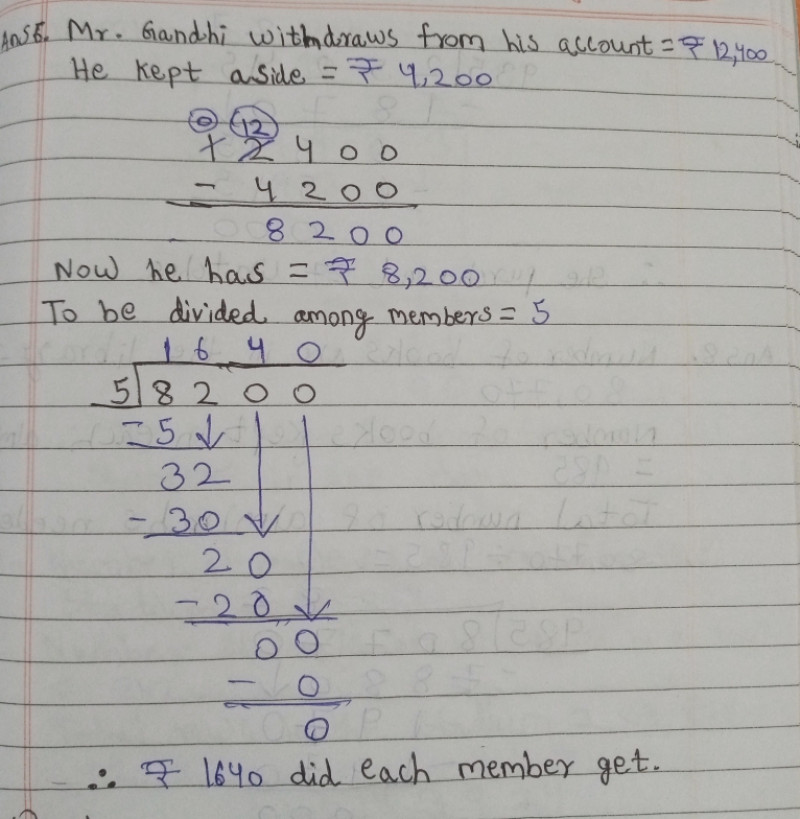 Ans6. Mr. Gandhi withdraws from his account = ₹ 12,400
He kept aside = ₹ 4,200
0 12
1 2 4 0 0
- 4 2 0 0
8 2 0 0
Now he has = ₹ 8,200
To be divided among members = 5
1 6 4 0
5 8 2 0 0
- 5
3 2
- 3 0
2 0
- 2 0
0 0
- 0
0
∴ ₹ 1640 did each member get.